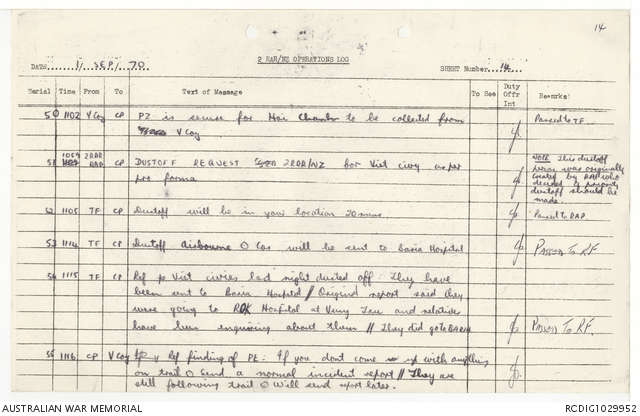 14
2 RAR/NZ OPERATIONS LOG
DATE 1/ SEP/ 70
SHEET Number 14
Serial Time From To Text of Message To See Duty Offr Int Remarks:
50 1102 V Coy CP PZ is secure for Hoi Chanh to be collected from Passed to TF.
V Coy
51 1059 2RAR RAP CP DUSTOFF REQUEST 2RAR/NZ for Viet civvy as per NOTE This dustoff
pro forma was originally
created by RAP who
decided
dustoff should be
made.
52 1105 TF CP Dustoff will be in your location 20 mins. Passed to RAP
53 1114 TF CP Dustoff airbourne O Cas will be sent to Baria Hospital PASSED TO RF.
54 1115 TF CP Ref p Viet civies last night dusted off: They have
been sent to Baria Hospital // Original report said they
were going to ROK Hospital at Vung Tau and relatives
have been enquiring about them // They did go to BARIA PASSED TO RF.
55 1116 CP V Coy Ref finding of PE: If you dont come up with anything
on trail O Send a normal incident report // They are
still following trail O Will send report later.
AUSTRALIAN WAR MEMORIAL
RCDIG1029952